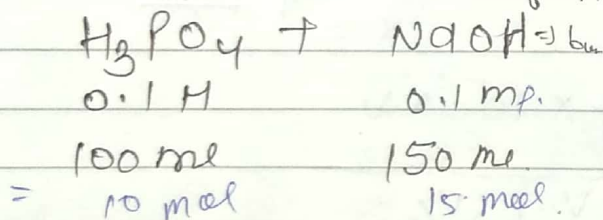 H₃PO₄ + NaOH ⇒
0.1 M 0.1
100 ml 150 ml
= 10 mol 15 mol.